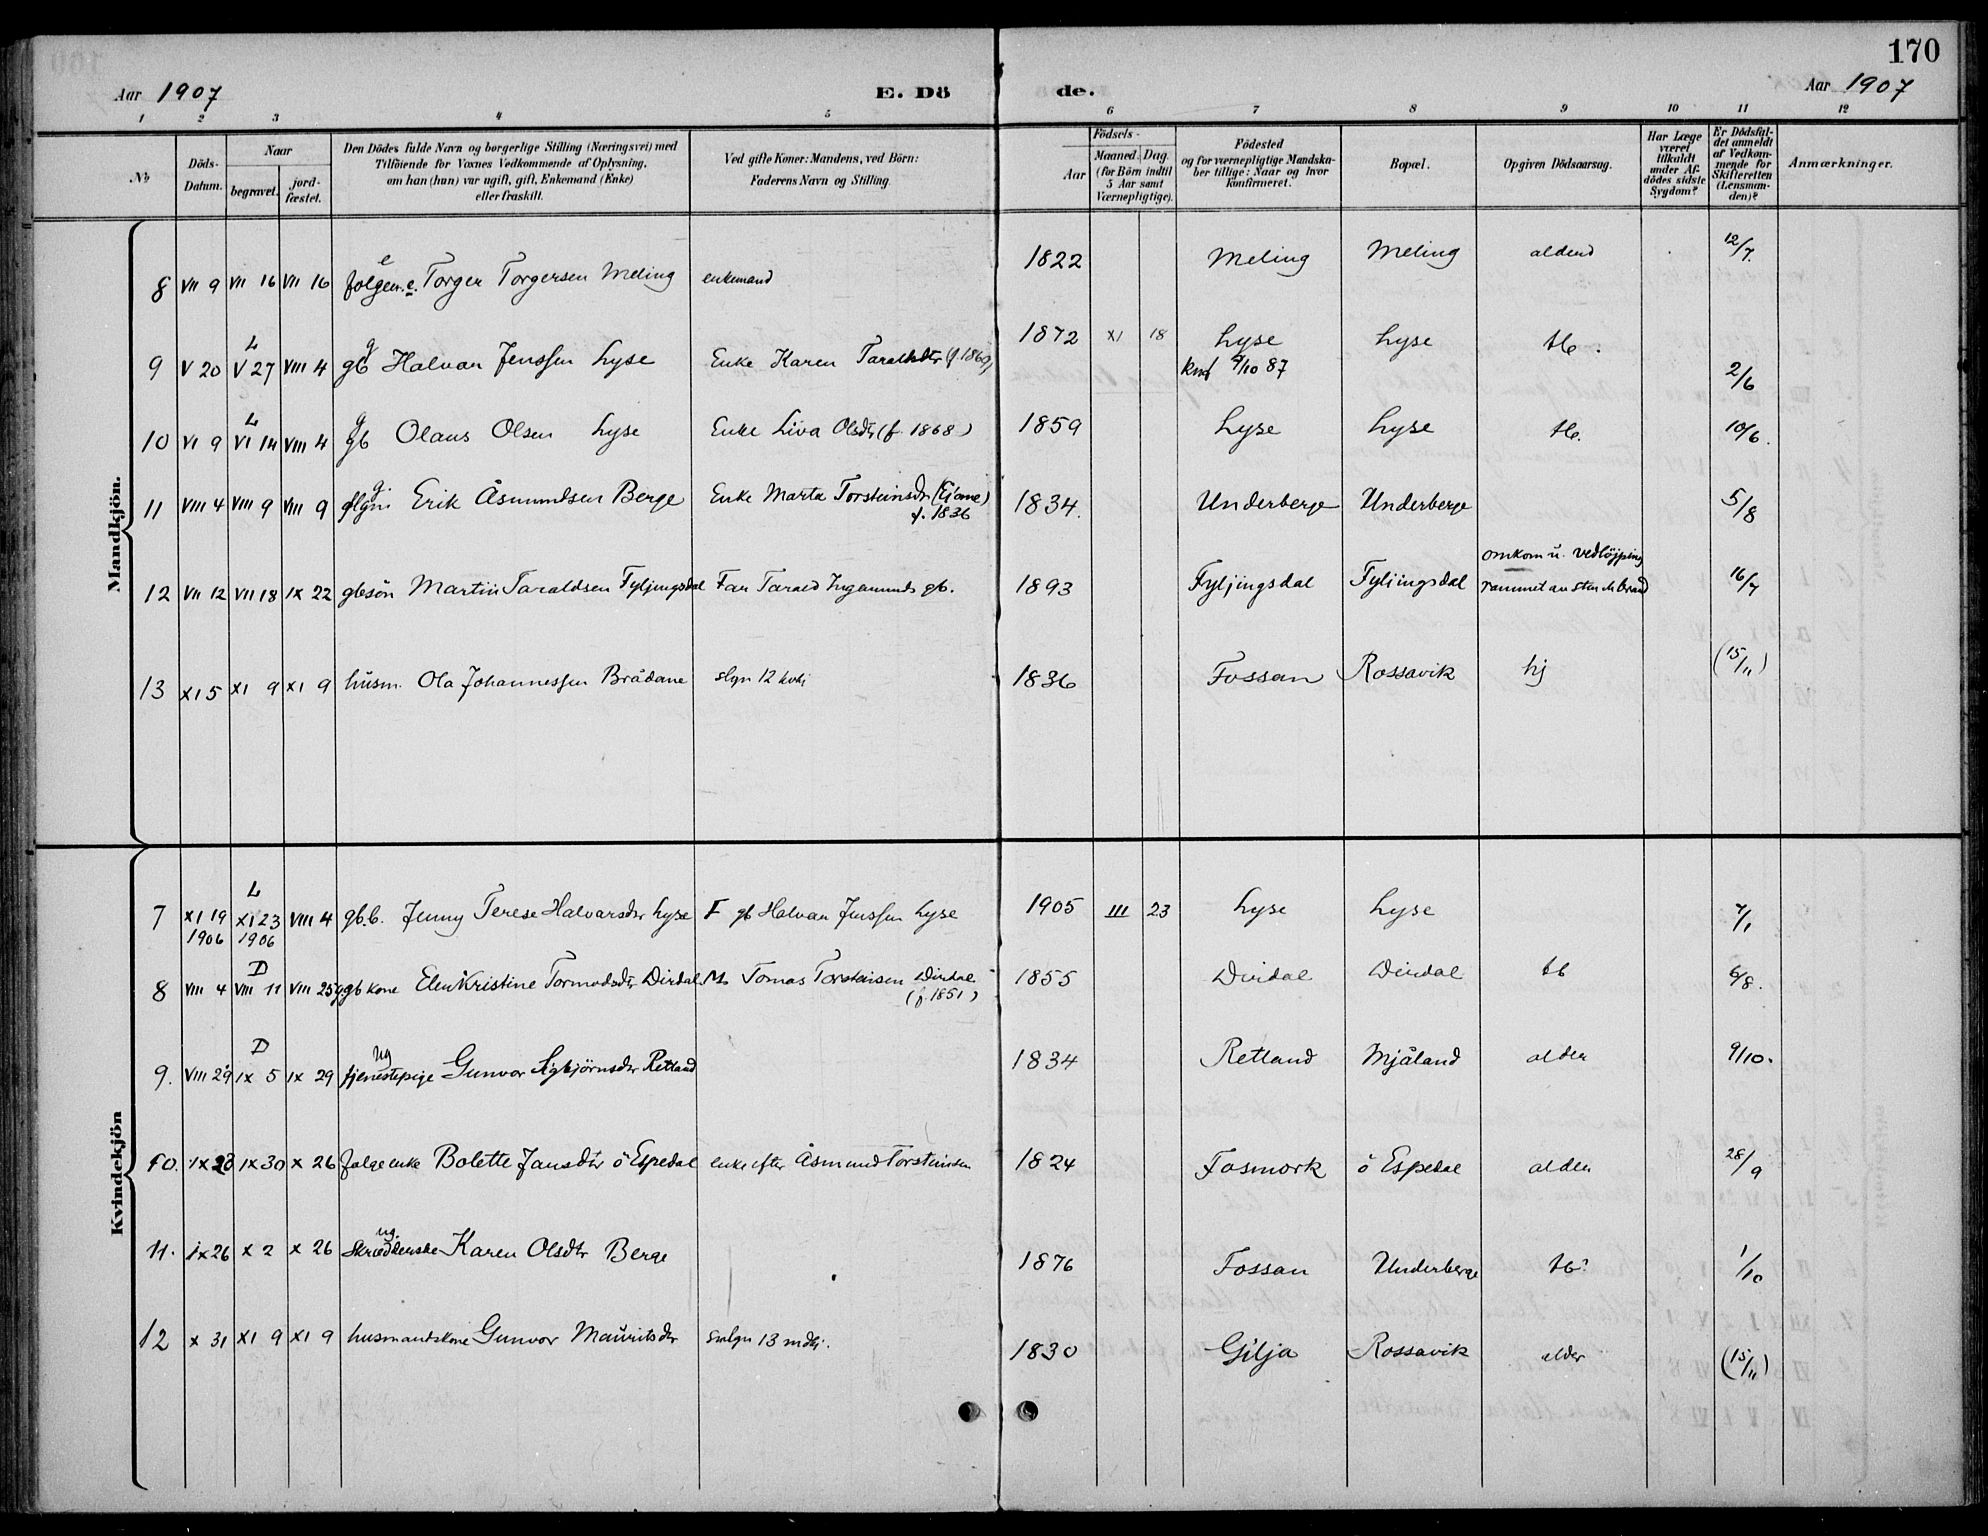 170
Aar 1907 E. Dö de. Aar 1907
1 2 3 4 5 6 7 8 9 10 11 12
No
Döds-Datum.
Naar
begravet.
jord-fæstet.
Den Dödes fulde Navn og borgerlige Stilling (Næringsvei) med
Tilföiende for Voxnes Vedkommende af Oplysning,
om han (hun) var ugift, gift, Enkemand (Enke)
eller fraskilt.
Ved gifte Koner: Mandens, ved Börn:
Faderens Navn og Stilling.
Födsels-
Aar
Maaned. Dag
(for Börn indtil
5 Aar samt
Værnepligtige).
Födested
og for værnepligtige Mandska-
ber tillige: Naar og hvor
konfirmeret.
Bopæl.
Opgiven Dödsaarsag.
Har Læge
været
tilkaldt
under Af-
dödes sidste
Sygdom?
Er Dödsfal-
det anmeldt
af Vedkom-
mende for
Skifteretten
(Lensman-
den)?
Anmærkninger.
Mandkjön.
8 VII 9 VII 16 VII 16 folgem. e. Torger Torgersen Meling enkemand 1822 Meling Meling 12/7.
e
9 V 20 L V 27 VIII 4 gb g Halvar Jenssen Lyse Enke Karen 1872 XI 18 Lyse Lyse tb. 2/6
Knf 9/10 87
10 VI 9 L VI 14 VIII 4 gb g Olaus Olsen Lyse Enke Liva Olsdtr (f. 1868) 1859 Lyse Lyse tb. 10/6.
11 VIII 4 VIII 9 VIII 9 g. Erik Åsmundsen Berge Enke Marta Torsteinsdr 1834. Underberge Underberge 5/8
f. 1836
12 VII 12 VII 18 IX 22 gbsön Martin Taraldsen Fyljingsdal Far Tarald gb. 1893 Fyljingsdal Fyljingsdal omkom u. vedlöjping 16/7
rammet av sten
13 XI 5 XI 9 XI 9 husm. Ola Johannessen Brådane slgn 12 kvkj 1836 Fossan Rossavik hj (15/11)
Kvindekjön
7 XI 19 1906 L XI 23 1906 VIII 4 gb.b. Jenny Terese Halvarsdtr Lyse F gb Halvar Jenssen Lyse 1905 III 23 Lyse Lyse
8 VIII 4 D VIII 11 VIII 25 g gb kone Elen Kristine Tormodsdtr Dirdal M Tomas Torsteinsen Dirdal 1855 Dirdal Dirdal tb 6/8.
(f. 1851)
9. VIII 29 D IX 5 IX 29 ug tjenestepige Gunvor Retland 1834 Retland Mjåland alder 9/10.
10. IX 23 IX 30 X 26 folgeenke Bolette Jansdtr ö Espedal enke efter Åsmund Torsteinsen 1824 Fosmork ö Espedal alder 28/9
11. IX 26 X 2 X 26 ug. Karen Olsdtr Berge 1876 Fossan Underberge tb? 1/10
12 X 31 XI 9 XI 9 husmandskone Gunvor Mauritsdtr smlgn 13 mdkj. 1830 Gilja Rossavik alder (15/11)